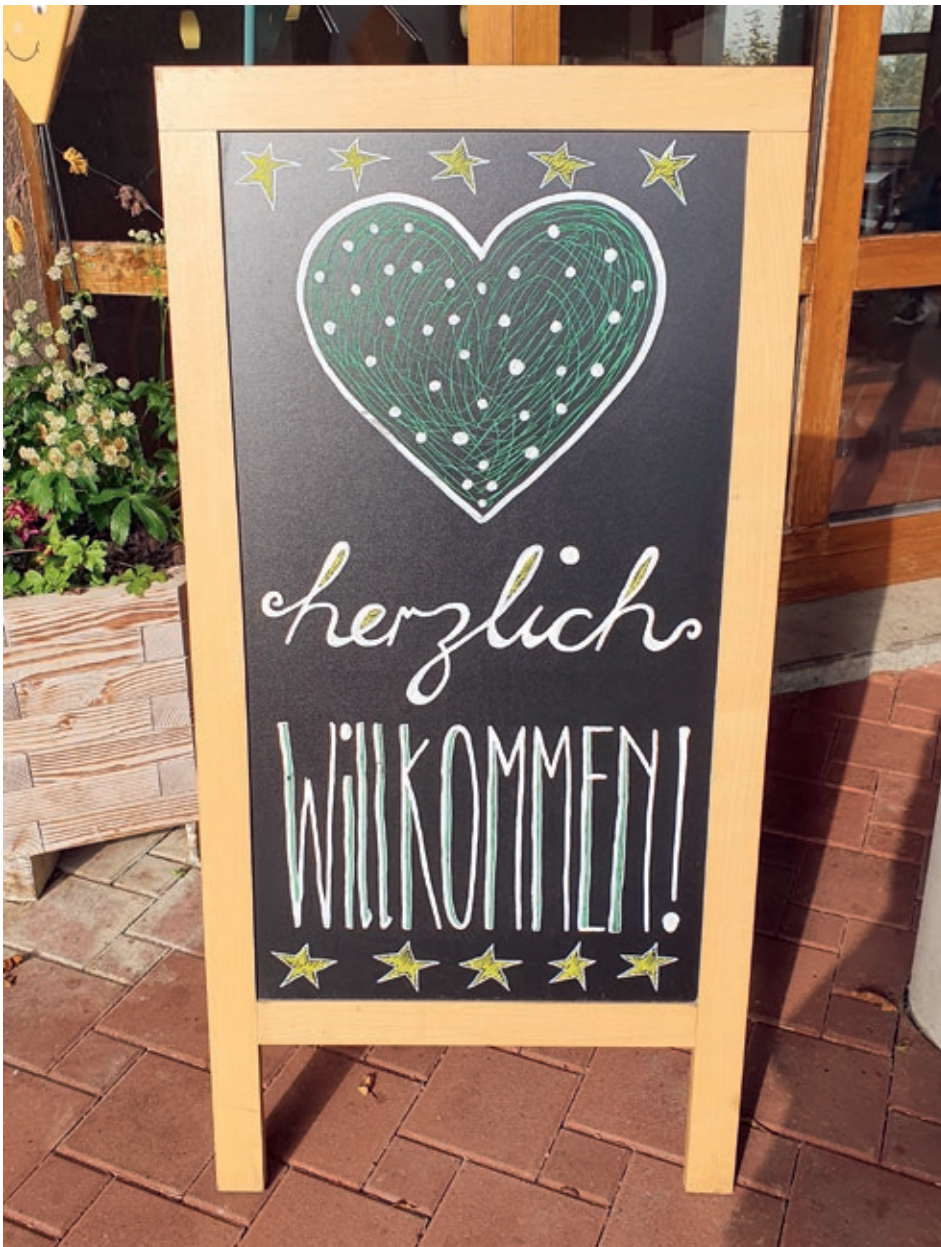 herzlich
WillKOMMEN!